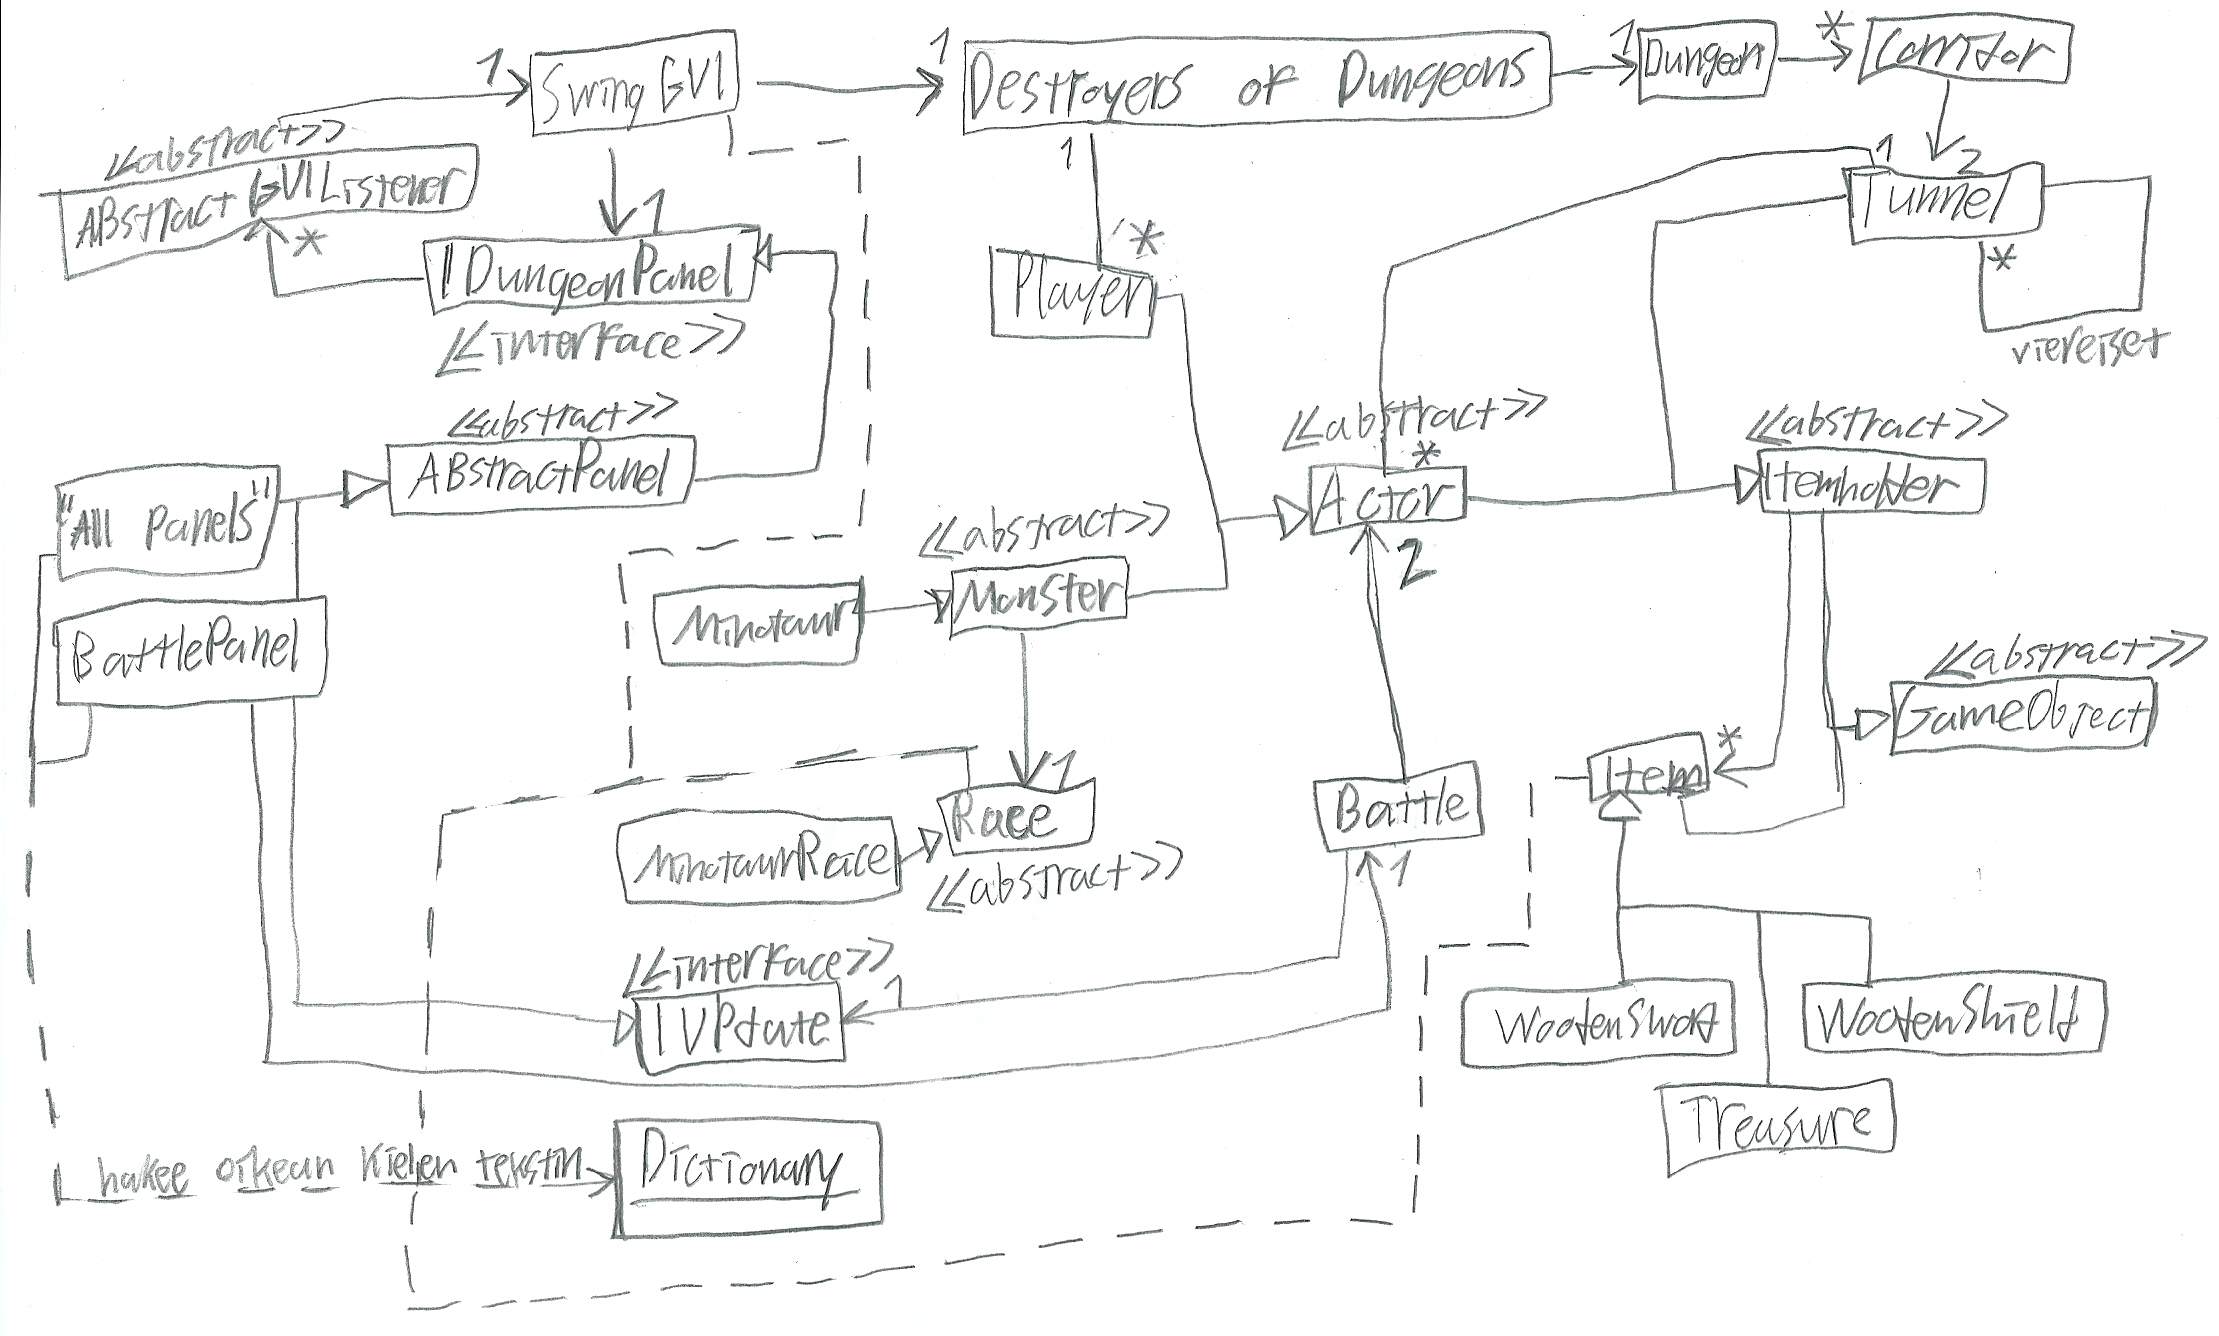 1
Swing GUI
1
Destroyers of Dungeons
1
Dungeon
*
Corridor
<<abstract>>
ABstract GUIListener
*
1
IDungeonPanel
<<interface>>
1
*
Player
1
2
Tunnel
*
viereiset
<<abstract>>
ABstractPanel
"All Panels"
BattlePanel
<<abstract>>
*
Actor
2
<<abstract>>
Itemholder
<<abstract>>
Monster
Minotaur
<<abstract>>
GameObject
*
Item
1
Race
<<abstract>>
MinotaurRace
Battle
1
<<interface>>
IUPdate
1
WoodenSword
WoodenShield
Treasure
hakee oikean Kielen tekstin
Dictionary